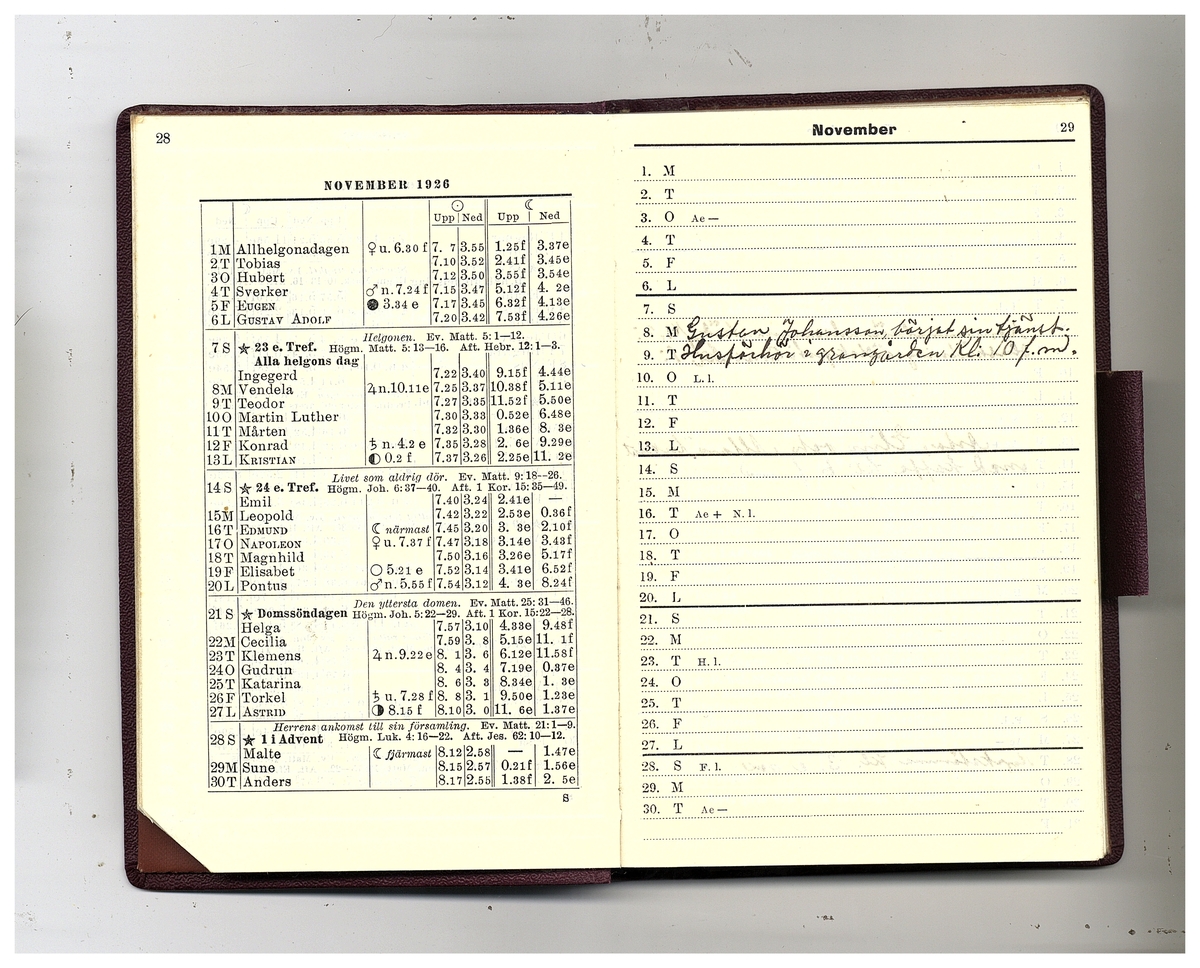 28
NOVEMBER 1926
☉ ☾
Upp Ned Upp Ned
1 M Allhelgonadagen ♀ u. 6.30 f 7. 7 3.55 1.25f 3.37e
2 T Tobias 7.10 3.52 2.41f 3.45e
3 O Hubert 7.12 3.50 3.55f 3.54e
4 T Sverker ♂ n. 7.24 f 7.15 3.47 5.12f 4. 2e
5 F EUGEN 3.34 e 7.17 3.45 6.32f 4.13e
6 L GUSTAV ADOLF 7.20 3.42 7.53f 4.26e
Helgonen. Ev. Matt. 5: 1—12.
7 S ★ 23 e. Tref. Högm. Matt. 5: 13—16. Aft. Hebr. 12: 1—3.
Alla helgons dag
Ingegerd 7.22 3.40 9.15f 4.44e
8 M Vendela ♃ n.10.11e 7.25 3.37 10.38f 5.11e
9 T Teodor 7.27 3.35 11.52f 5.50e
10 O Martin Luther 7.30 3.33 0.52e 6.48e
11 T Mårten 7.32 3.30 1.36e 8. 3e
12 F Konrad ♄ n. 4.2 e 7.35 3.28 2. 6e 9.29e
13 L KRISTIAN ◐ 0.2 f 7.37 3.26 2.25e 11. 2e
Livet som aldrig dör. Ev. Matt. 9: 18—26.
14 S ★ 24 e. Tref. Högm. Joh. 6: 37—40. Aft. 1 Kor. 15: 35—49.
Emil 7.40 3.24 2.41e —
15 M Leopold 7.42 3.22 2.53e 0.36f
16 T EDMUND ☾ närmast 7.45 3.20 3. 3e 2.10f
17 O NAPOLEON ♀ u. 7.37 f 7.47 3.18 3.14e 3.43f
18 T Magnhild 7.50 3.16 3.26e 5.17f
19 F Elisabet ○ 5.21 e 7.52 3.14 3.41e 6.52f
20 L Pontus ♂ n. 5.55 f 7.54 3.12 4. 3e 8.24f
Den yttersta domen. Ev. Matt. 25: 31—46.
21 S ★ Domssöndagen Högm. Joh. 5: 22—29. Aft. 1 Kor. 15:22—28.
Helga 7.57 3.10 4.33e 9.48f
22 M Cecilia 7.59 3. 8 5.15e 11. 1f
23 T Klemens ♃ n. 9.22 e 8. 1 3. 6 6.12e 11.58f
24 O Gudrun 8. 4 3. 4 7.19e 0.37e
25 T Katarina 8. 6 3. 3 8.34e 1. 3e
26 F Torkel ♄ u. 7.28 f 8. 8 3. 1 9.50e 1.23e
27 L ASTRID ◑ 8.15 f 8.10 3. 0 11. 6e 1.37e
Herrens ankomst till sin församling. Ev. Matt. 21: 1—9.
28 S ★ 1 i Advent Högm. Luk. 4: 16—22. Aft. Jes. 62: 10—12.
Malte ☾ fjärmast 8.12 2.58 — 1.47e
29 M Sune 8.15 2.57 0.21f 1.56e
30 T Anders 8.17 2.55 1.38f 2. 5e
8
November 29
1. M
2. T
3. O Ae —
4. T
5. F
6. L
7. S
8. M Gustan Johansson börjat sin tjänst.
9. T Husförhör i grangärden Kl. 10 f.m.
10. O L. l.
11. T
12. F
13. L
14. S
15. M
16. T Ae + N. l.
17. O
18. T
19. F
20. L
21. S
22. M
23. T H. l.
24. O
25. T
26. F
27. L
28. S F. l.
29. M
30. T Ae —